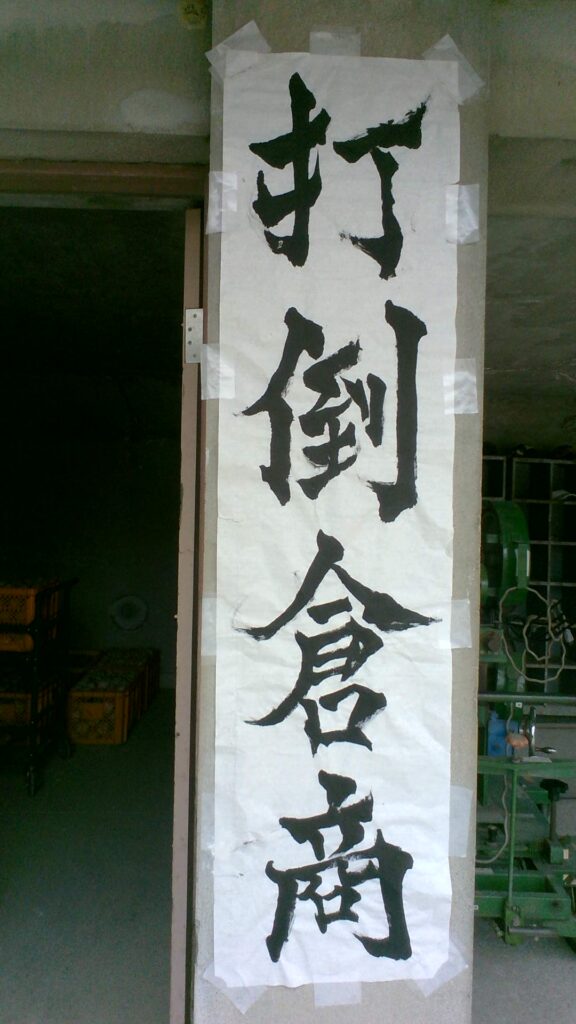 打倒倉商